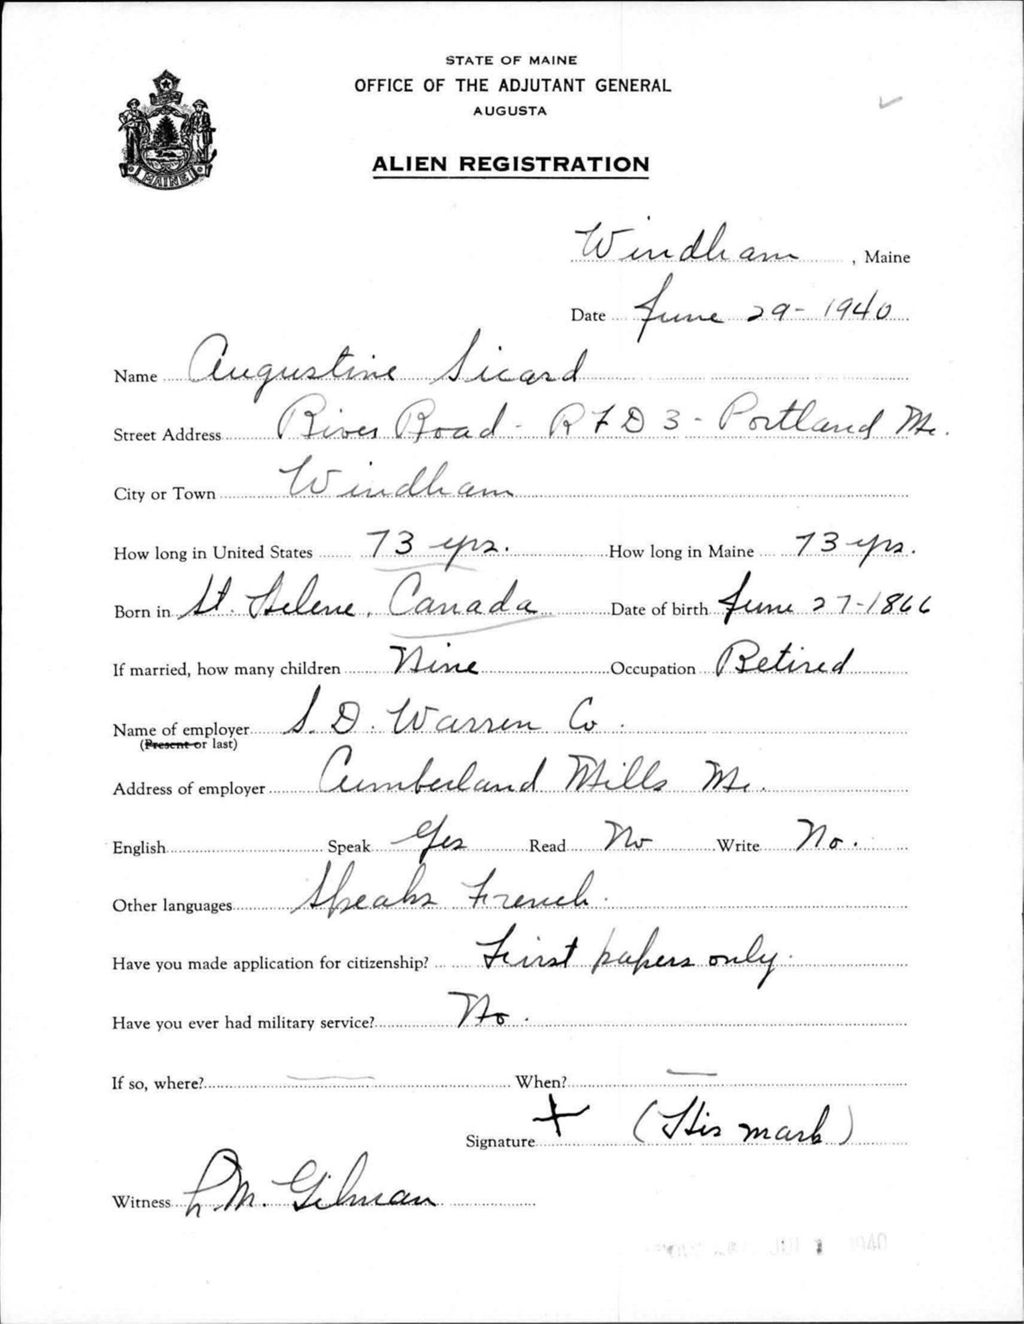 STATE OF MAINE
OFFICE OF THE ADJUTANT GENERAL
AUGUSTA
ALIEN REGISTRATION
MAINE
Windham, Maine
Date June 29-1940
Name Augustine Sicard
Street Address River Road - RFD 3 - Portland Me.
City or Town Windham
How long in United States 73 yrs. How long in Maine 73 yrs.
Born in St. Helene, Canada Date of birth June 27-1866
If married, how many children Nine Occupation Retired
Name of employer S. D. Warren Co.
(Present or last)
Address of employer Cumberland Mills Me.
English Speak Yes Read No Write No.
Other languages Speaks French.
Have you made application for citizenship? First papers only.
Have you ever had military service? No.
If so, where? — When? —
Signature + (His mark)
Witness L. M. Gilman